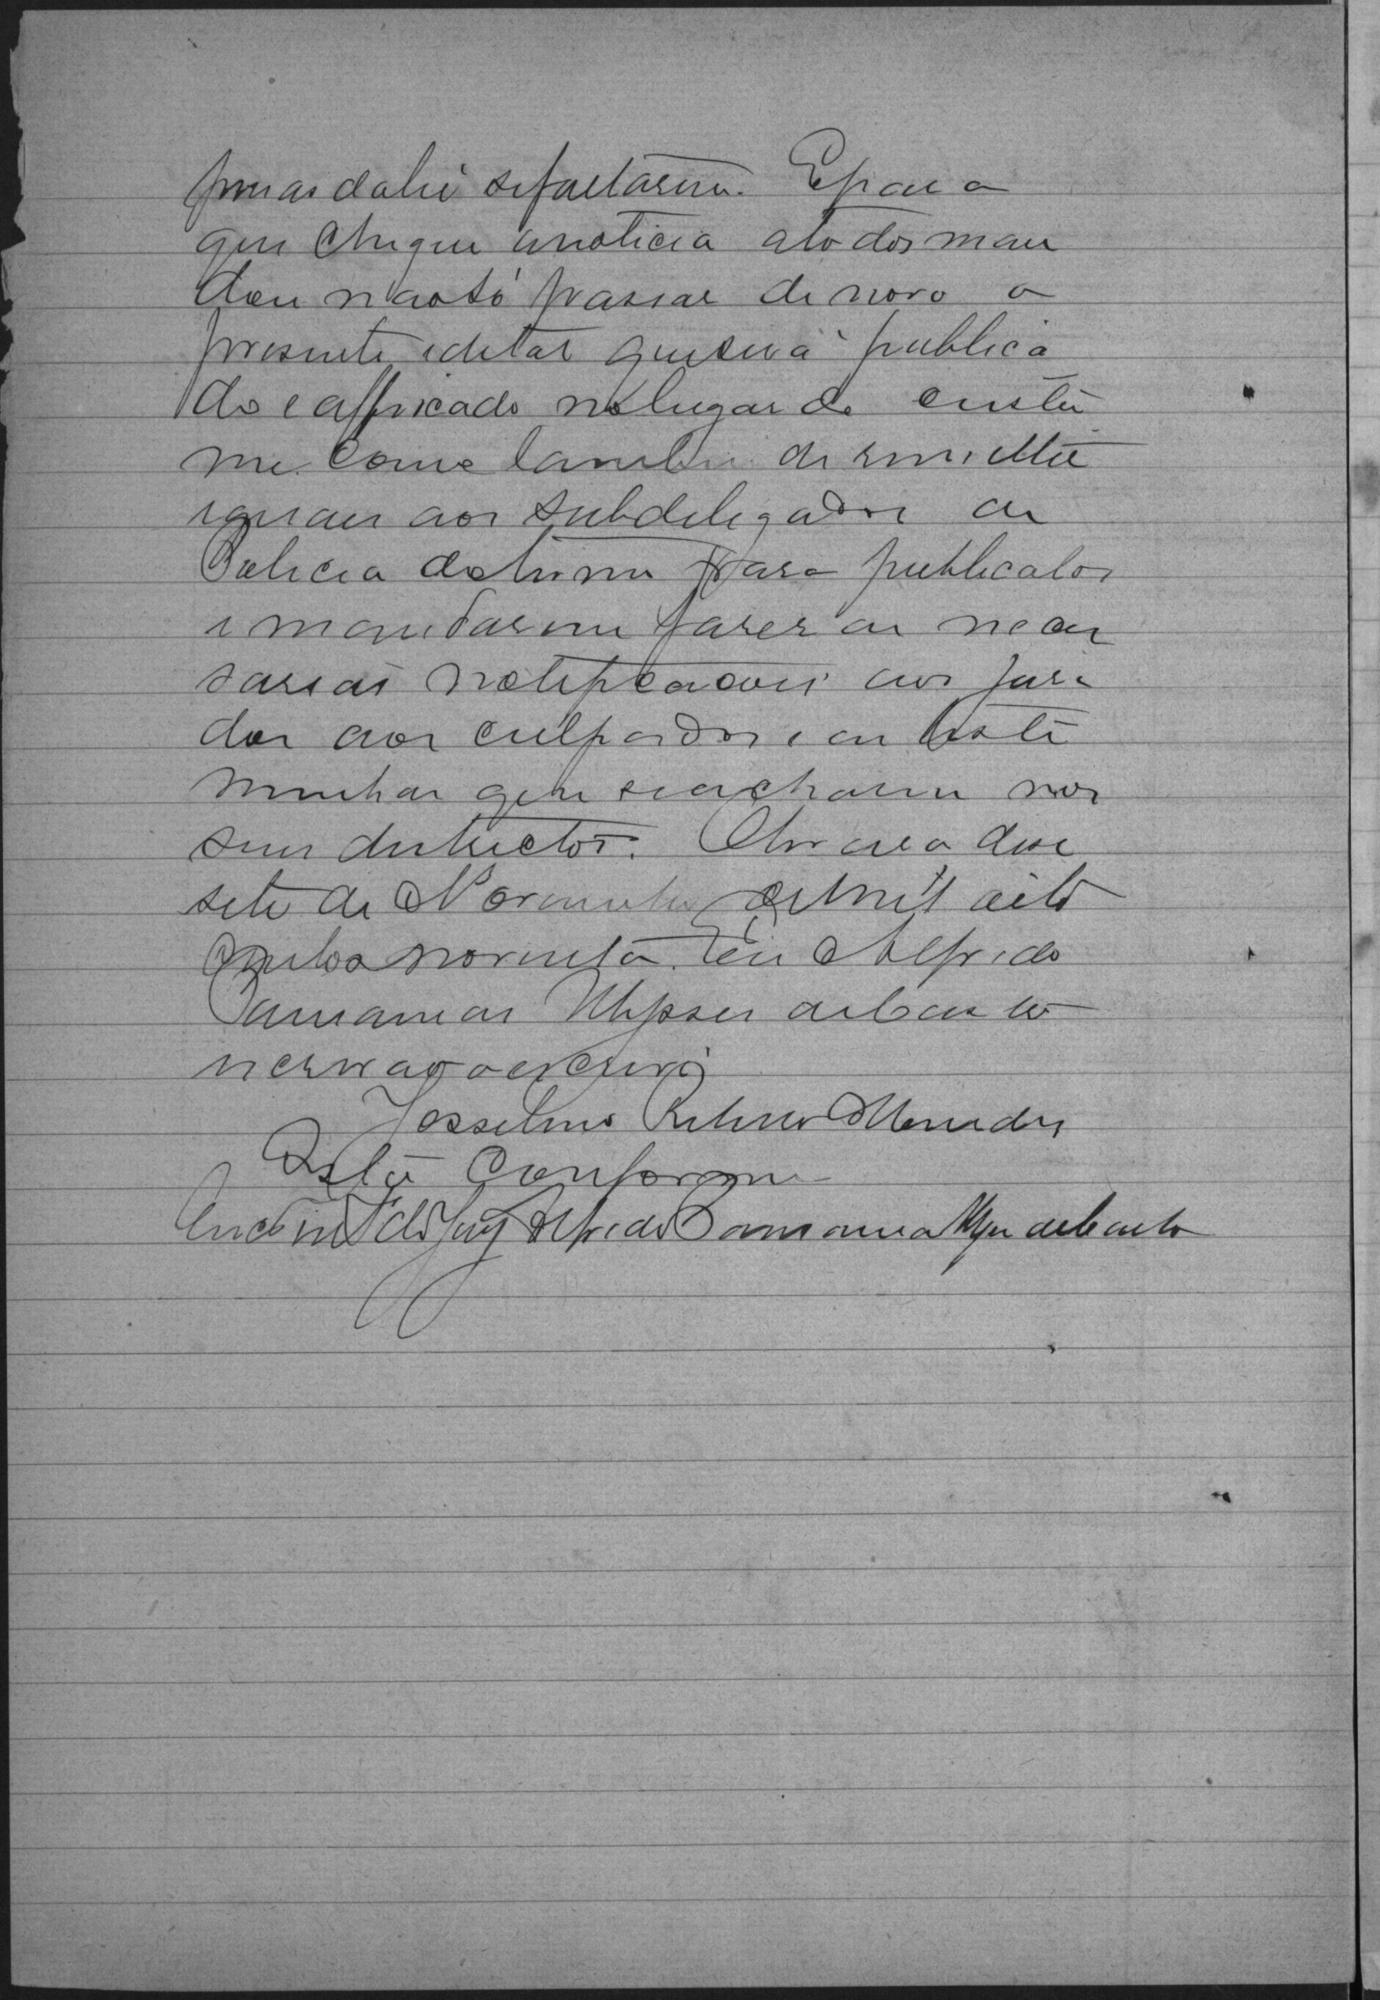 penas da lei se faltarem. E para
que chegue a noticia a todos man
dou não só passar de novo o
presente edital que será publica
do e affixado no lugar do custu
me. Como tambem de remetter
iguaes aos subdelegados de
Policia do termo para publicalos
e mandarem fazer as neces
sarias notificações aos jura
dos aos culpados e as teste
munhas que se acharem nos
seus districtos. aos deze
sete de Novembro de mil oito
centos noventa. Eu Alfredo
Ulysses de Castro
escrivão o escrevi
Josselino Ribeiro Mendes
Está Conforme
Alfredo de Castro